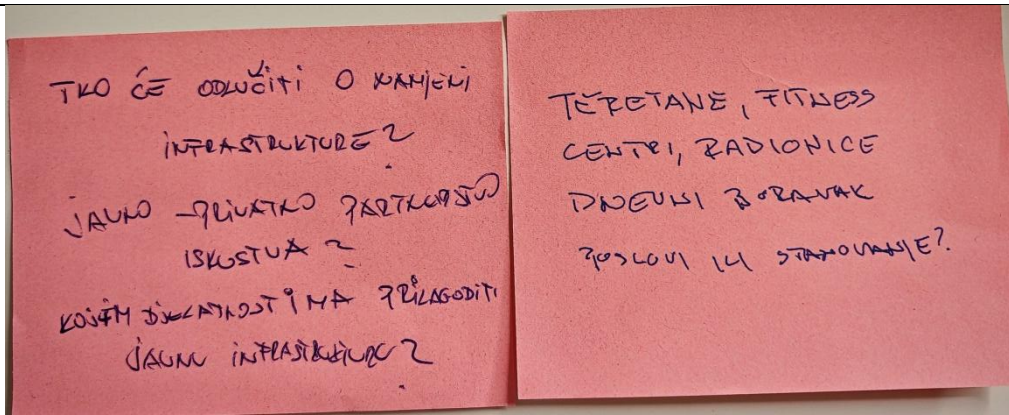 TKO ĆE ODLUČITI O NAMJENI
INFRASTRUKTURE?
JAVNO - PRIVATNO PARTNERSTVO
ISKUSTVA?
KOJIM DJELATNOSTIMA PRILAGODITI
JAVNU INFRASTRUKTURU?
TERETANE, FITNESS
CENTRI, RADIONICE
DNEVNI BORAVAK
POSLOVI ILI STANOVANJE?